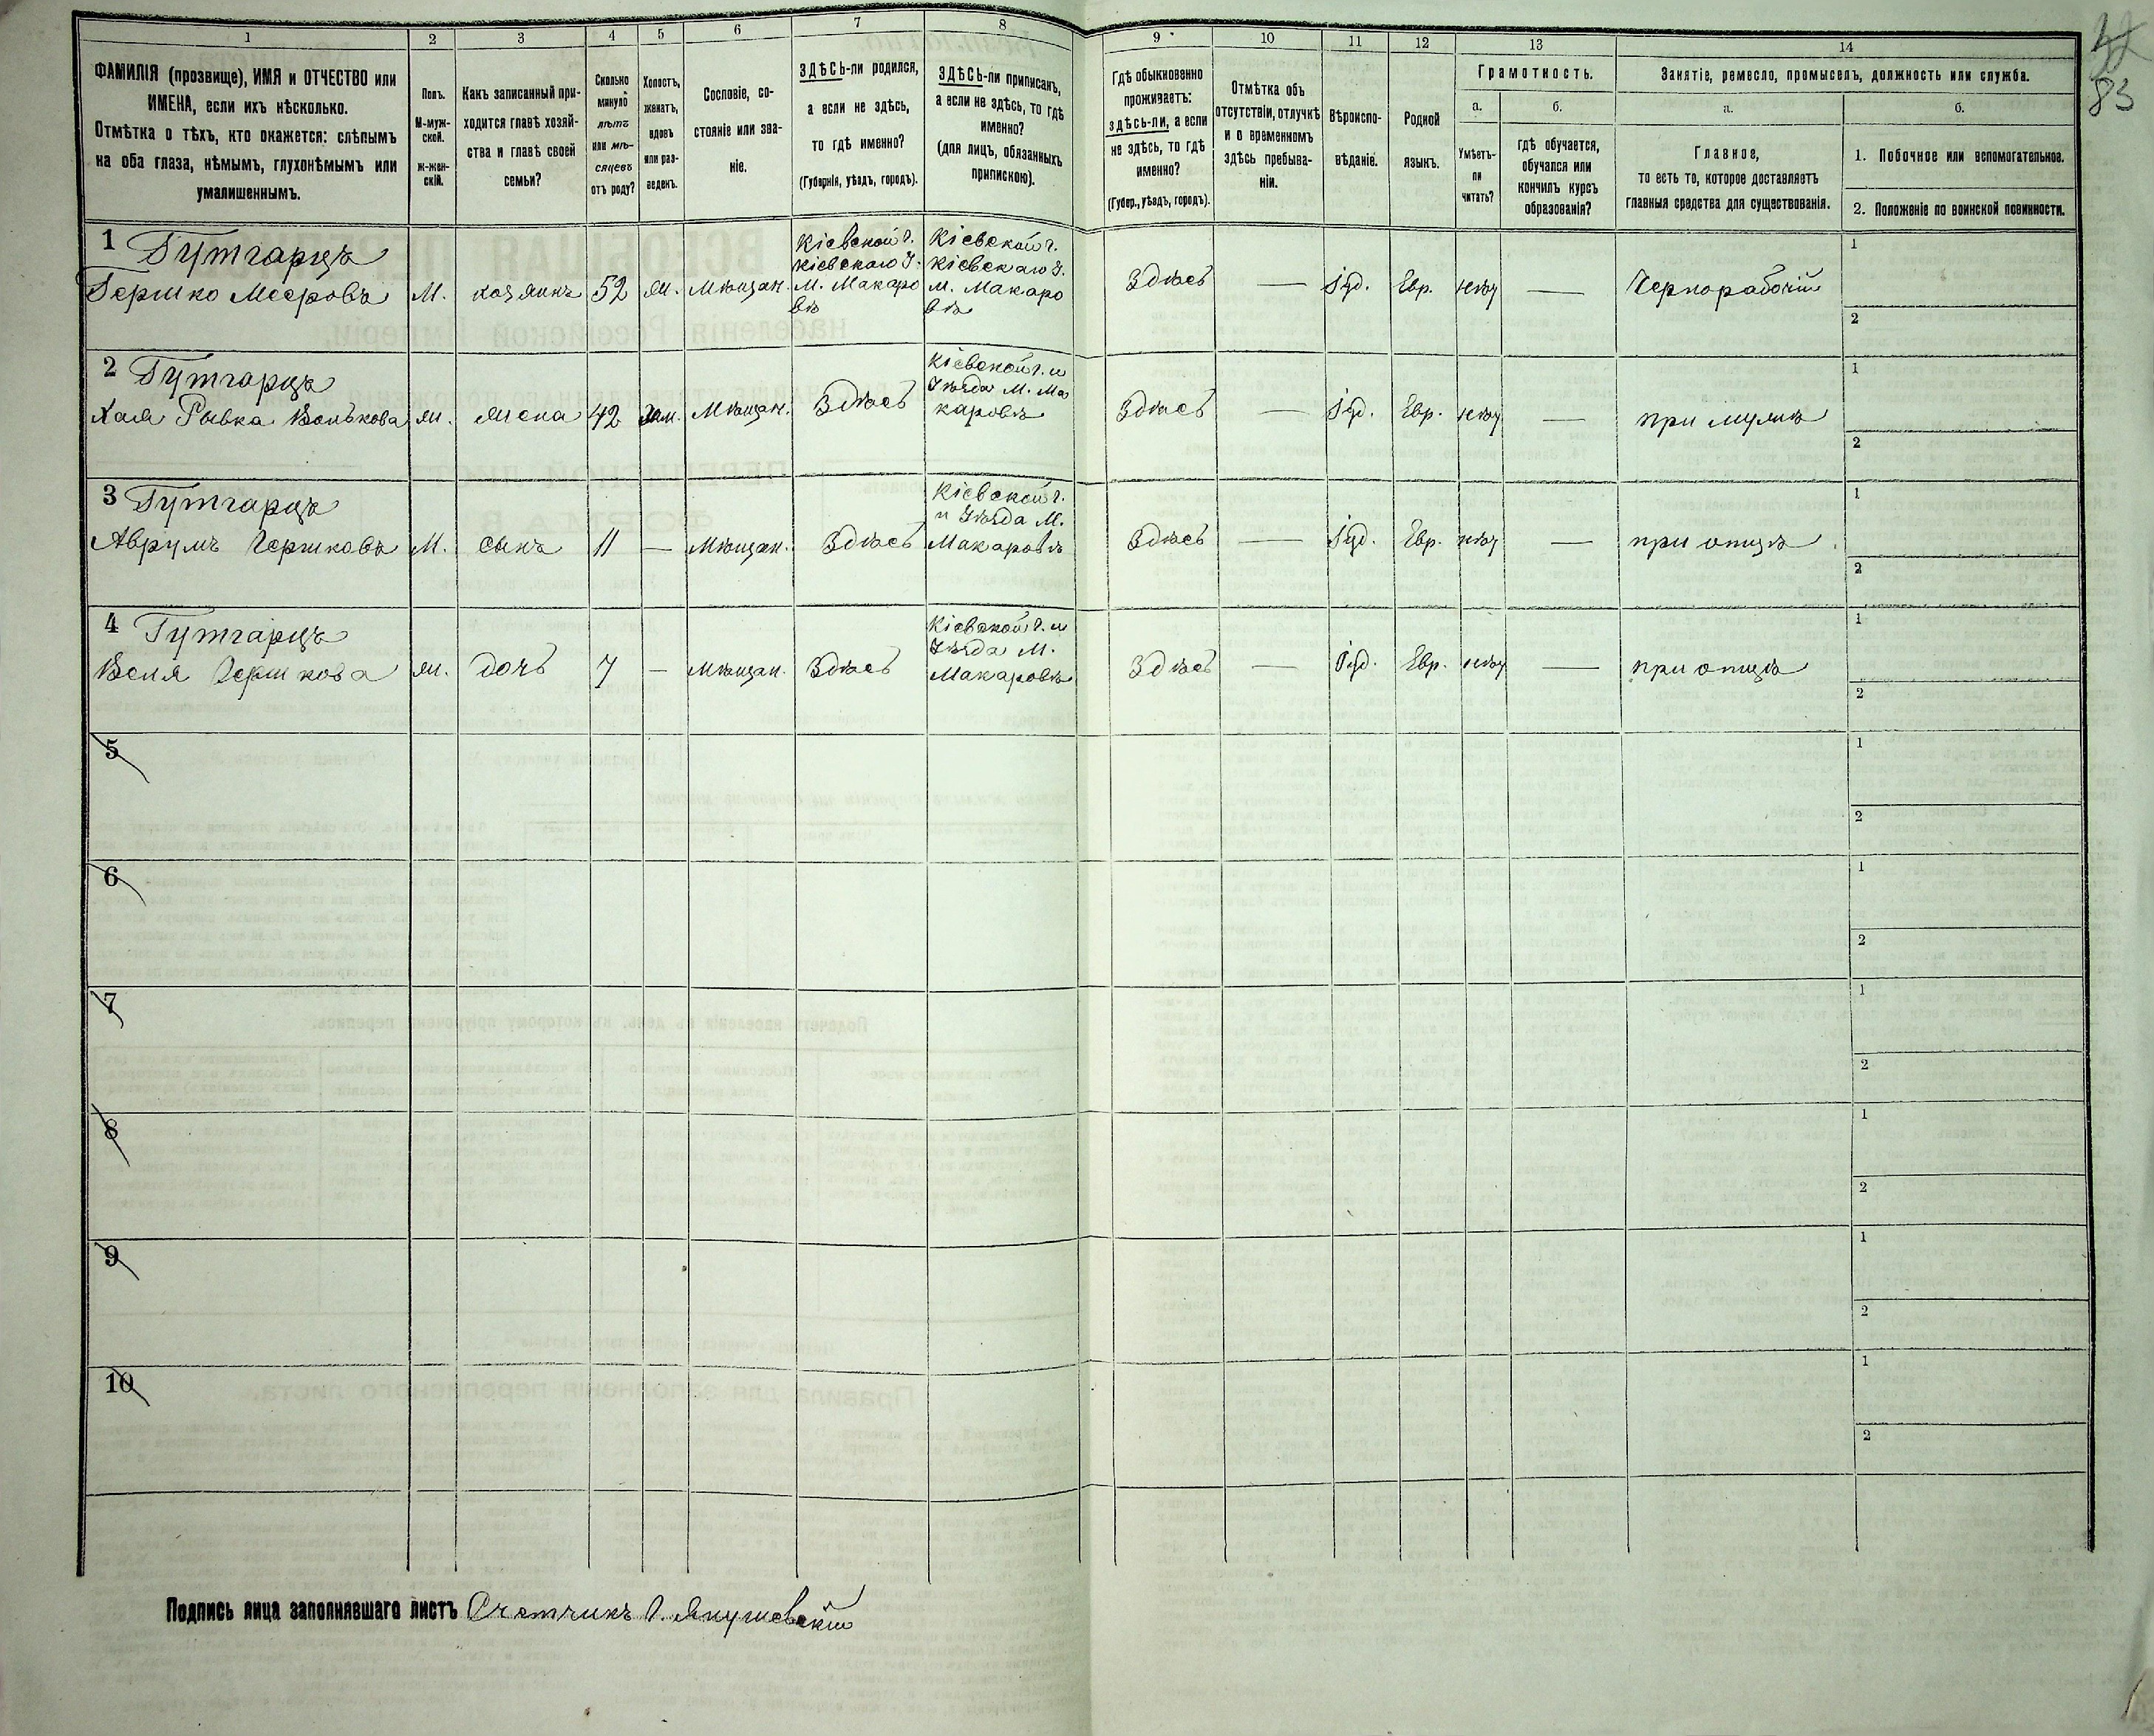 1 2 3 4 5 6 7 8 9 10 11 12 13 14
ФАМИЛІЯ (прозвище), ИМЯ и ОТЧЕСТВО или
ИМЕНА, если ихъ нѣсколько.
Отмѣтка о тѣхъ, кто окажется: слѣпымъ
на оба глаза, нѣмымъ, глухонѣмымъ или
умалишеннымъ.
Полъ.
М-муж-
ской.
ж-жен-
скій.
Какъ записанный при-
ходится главѣ хозяй-
ства и главѣ своей
семьи?
Сколько
минуло
лѣтъ
или мѣ-
сяцевъ
отъ роду?
Холостъ,
женатъ,
вдовъ
или раз-
веденъ.
Сословіе, со-
стояніе или зва-
ніе.
ЗДѢСЬ-ли родился,
а если не здѣсь,
то гдѣ именно?
(Губернія, уѣздъ, городъ).
ЗДѢСЬ-ли приписанъ,
а если не здѣсь, то гдѣ
именно?
(для лицъ, обязанныхъ
припискою).
Гдѣ обыкновенно
проживаетъ:
здѣсь-ли, а если
не здѣсь, то гдѣ
именно?
(Губер., уѣздъ, городъ).
Отмѣтка объ
отсутствіи, отлучкѣ
и о временномъ
здѣсь пребыва-
ніи.
Вѣроиспо-
вѣданіе.
Родной
языкъ.
Грамотность.
а. б.
Умѣетъ-
ли
читать?
гдѣ обучается,
обучался или
кончилъ курсъ
образованія?
Занятіе, ремесло, промыселъ, должность или служба.
а. б.
Главное,
то есть то, которое доставляетъ
главныя средства для существованія.
1. Побочное или вспомогательное.
2. Положеніе по воинской повинности.
83
1 Гутгарцъ
Гершко Мееровъ М. хозяинъ 52 Ж. Мѣщан.
Кіевской г.
Кіевскаго У.
М. Макаро
въ
Кіевской г.
Кіевскаго У.
М. Макаро
въ
Здѣсь — Іуд. Евр. нѣту — Чернорабочій
1
2
2 Гутгарцъ
Хая Рывка Волькова ж. жена 42 Зам. Мѣщан. Здѣсь
Кіевской г. и
Уѣзда М. Ма
каровъ
Здѣсь — Іуд. Евр. нѣту — при мужѣ
1
2
3 Гутгарцъ
Аврумъ Гершковъ М. сынъ 11 — Мѣщан. Здѣсь
Кіевской г.
и Уѣзда М.
Макаровъ
Здѣсь — Іуд. Евр. нѣту — при отцѣ
1
2
4 Гутгарцъ
Беля Гершкова ж. дочь 7 — Мѣщан. Здѣсь
Кіевской г. и
Уѣзда М.
Макаровъ
Здѣсь — Іуд. Евр. нѣту — при отцѣ
1
2
5
1
2
6
1
2
7
1
2
8
1
2
9
1
2
10
1
2
Подпись лица заполнявшаго листъ Счетчикъ Г. Янушевскій